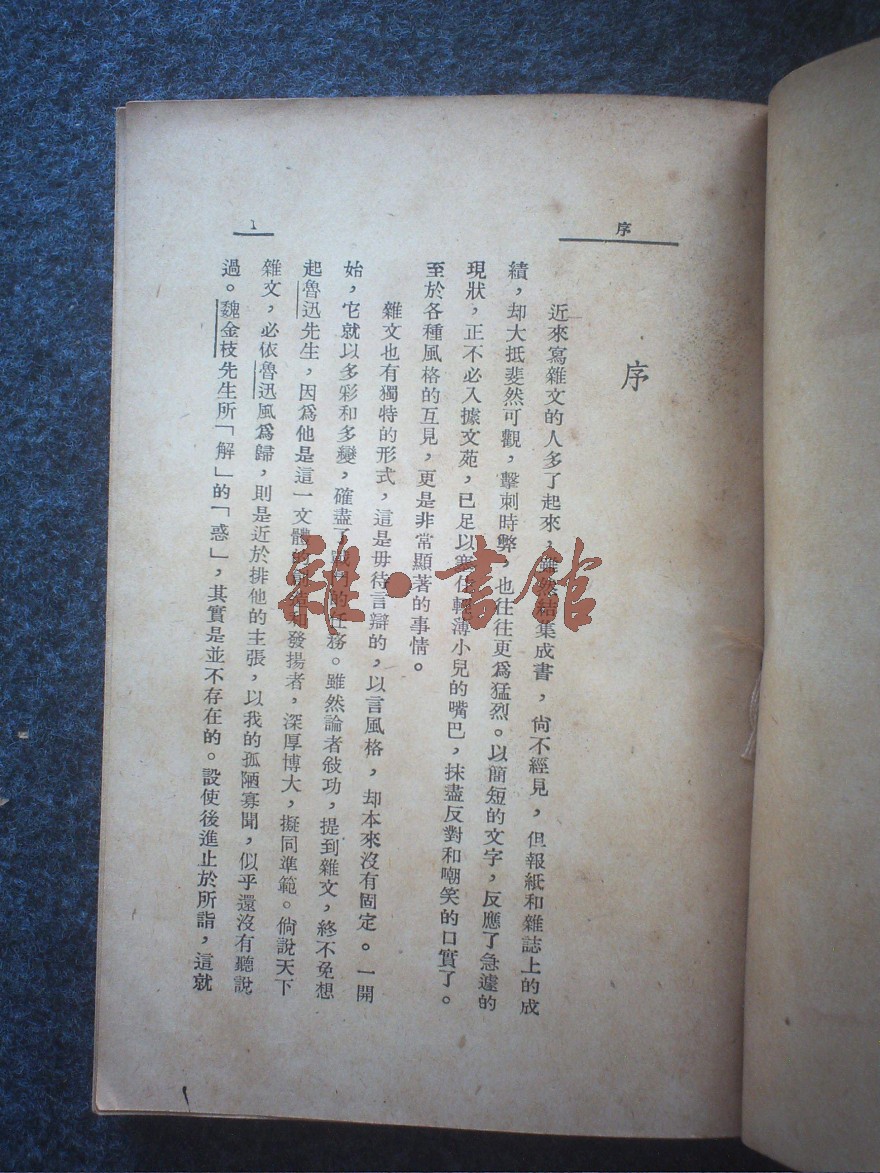 序
序
近來寫雜文的人多了起來，雖然結集成書，尙不經見，但報紙和雜誌上的成
績，却大抵斐然可觀，擊刺時弊，也往往更爲猛烈。以簡短的文字，反應了急遽的
現狀，正不必入據文苑，已足以塞住輕薄小兒的嘴巴，抹盡反對和嘲笑的口實了。
至於各種風格的互見，更是非常顯著的事情。
雜文也有獨特的形式，這是毋待言辯的，以言風格，却本來沒有固定。一開
始，它就以多彩和多變，確盡了戰鬥的任務。雖然論者敍功，提到雜文，終不免想
起魯迅先生，因爲他是這一文體的發揚者，深厚博大，擬同準範。倘說天下
雜文，必依魯迅風爲歸，則是近於排他的主張，以我的孤陋寡聞，似乎還沒有聽說
過。魏金枝先生所「解」的「惑」，其實是並不存在的。設使後進止於所詣，這就
1
雜·書館